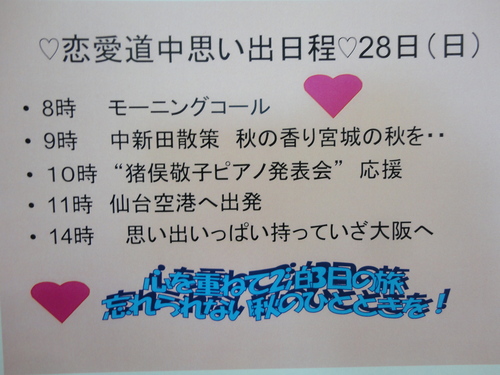 ♡恋愛道中思い出日程♡28日(日)
・8時 モーニングコール
・9時 中新田散策 秋の香り宮城の秋を・・
・10時 “猪俣敬子ピアノ発表会” 応援
・11時 仙台空港へ出発
・14時 思い出いっぱい持っていざ大阪へ
心を重ねて2泊3日の旅
忘れられない秋のひとときを!